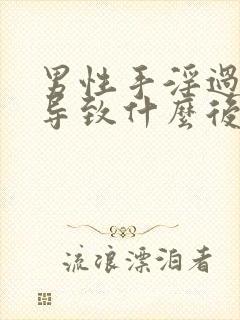 男性手淫過
导致什麼後
流浪漂泊者